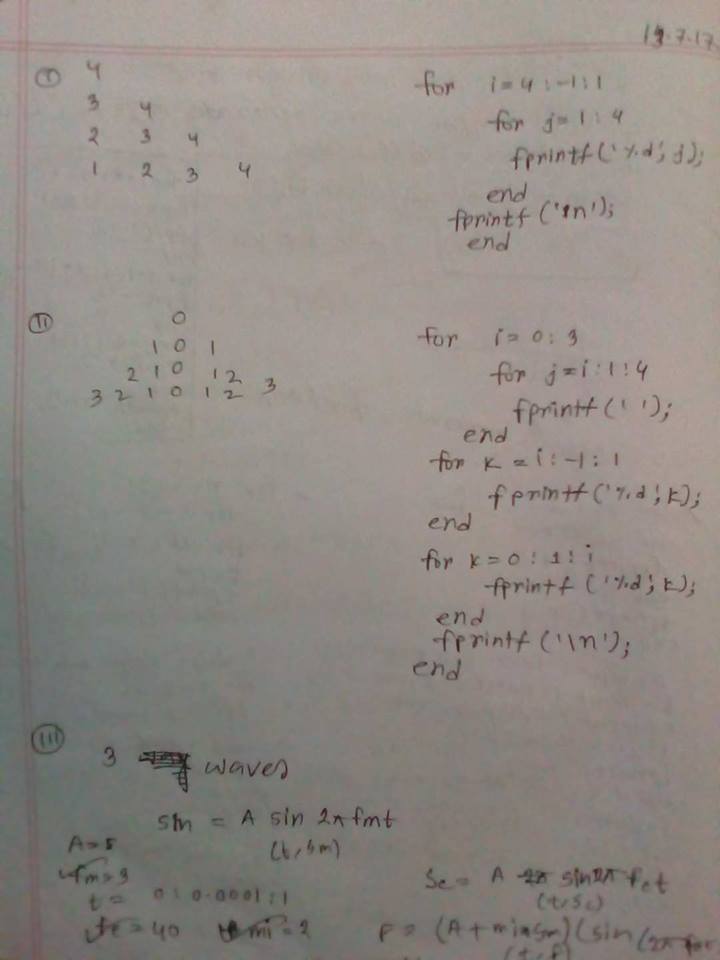 19.7.17
(I) 4
3 4
2 3 4
1 2 3 4
for i=4:-1:1
for j=1:4
fprintf('%d',j);
end
fprintf('\n');
end
(II) 0
1 0 1
2 1 0 1 2
3 2 1 0 1 2 3
for i=0:3
for j=i:1:4
fprintf(' ');
end
for k=i:-1:1
fprintf('%d',k);
end
for k=0:1:i
fprintf('%d',k);
end
fprintf('\n');
end
(III) 3 waves
Sm = A sin 2π fmt
(t,sm)
A=5
fm=3
t= 0:0.0001:1
fc=40 mi=2
Sc= A sin2π fct
(t,sc)
F= (A+mi*Sm)(sin(2π
(t,f)